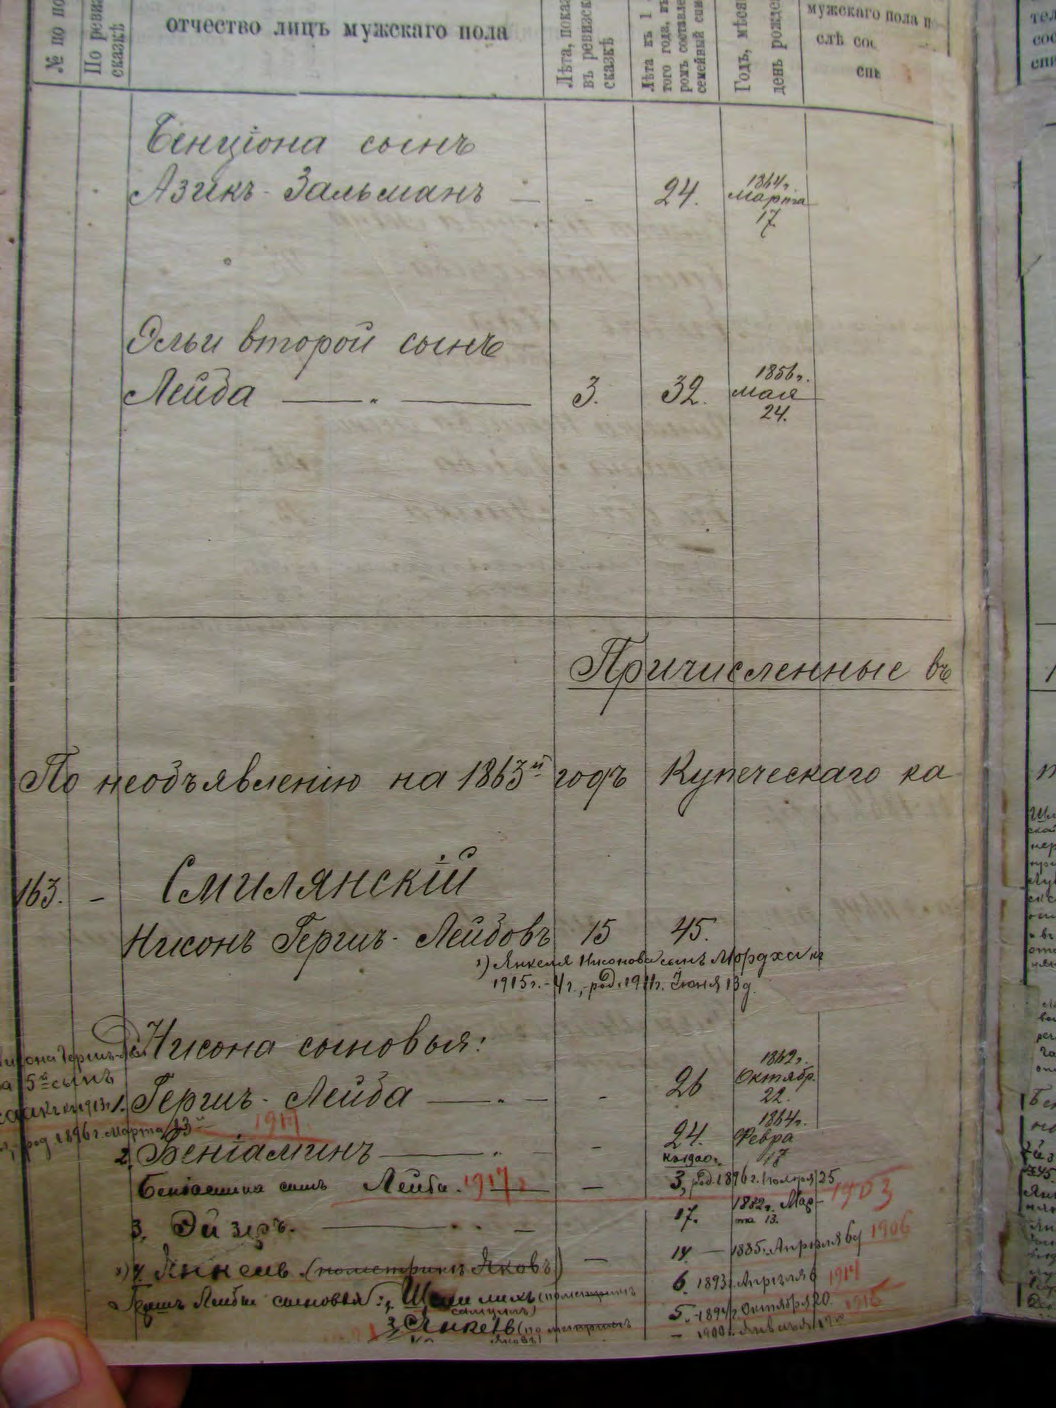 № по по
По ревиз
сказкѣ
отчество лицъ мужскаго пола
Лѣта, показ
въ ревизск
сказкѣ
Лѣта къ 1
того года, въ
ромъ составле
семейный спи
Годъ, мѣся
день рожде
мужскаго пола
слѣ сос
спи
Бенціона сынъ
Азикъ-Зальманъ — - 24. 1864г. Марта 17
Эльи второй сынъ
Лейба — „ — 3. 32. 1856г. мая 24.
Причисленные въ
По необъявленію на 1863й годъ Купеческаго ка
163. - Смилянскій
Нисонъ Гершъ-Лейбовъ 15 45.
Янкеля Нисонова сынъ Мордхай
1915г.-4г., род. 1911г. Іюня 13д.
Нисона сыновья:
5й сынъ
1. Гершъ-Лейба — - 26 1862г. Октябр. 22.
род 1896г. Марта 13
1917
2. Беніаминъ — - 24. 1864г. Февра 17
Беніамина сынъ Лейба. 1917г — 3, род. 1896г. Ноября 25
1903
3. Эйзеръ. — - 17. 1882г. Мар-
та 13.
4. Янкель (пометрикѣ Яковъ) — 14 — 1885. Апрѣля 6д 1906
Гершъ Лейбы сыновья: 6. 1893г. Апрѣля 6 1914
5. - 1894г. Октября 20 1915
3, Янкель (по метрикѣ
Яковъ)
- 1900г. Января